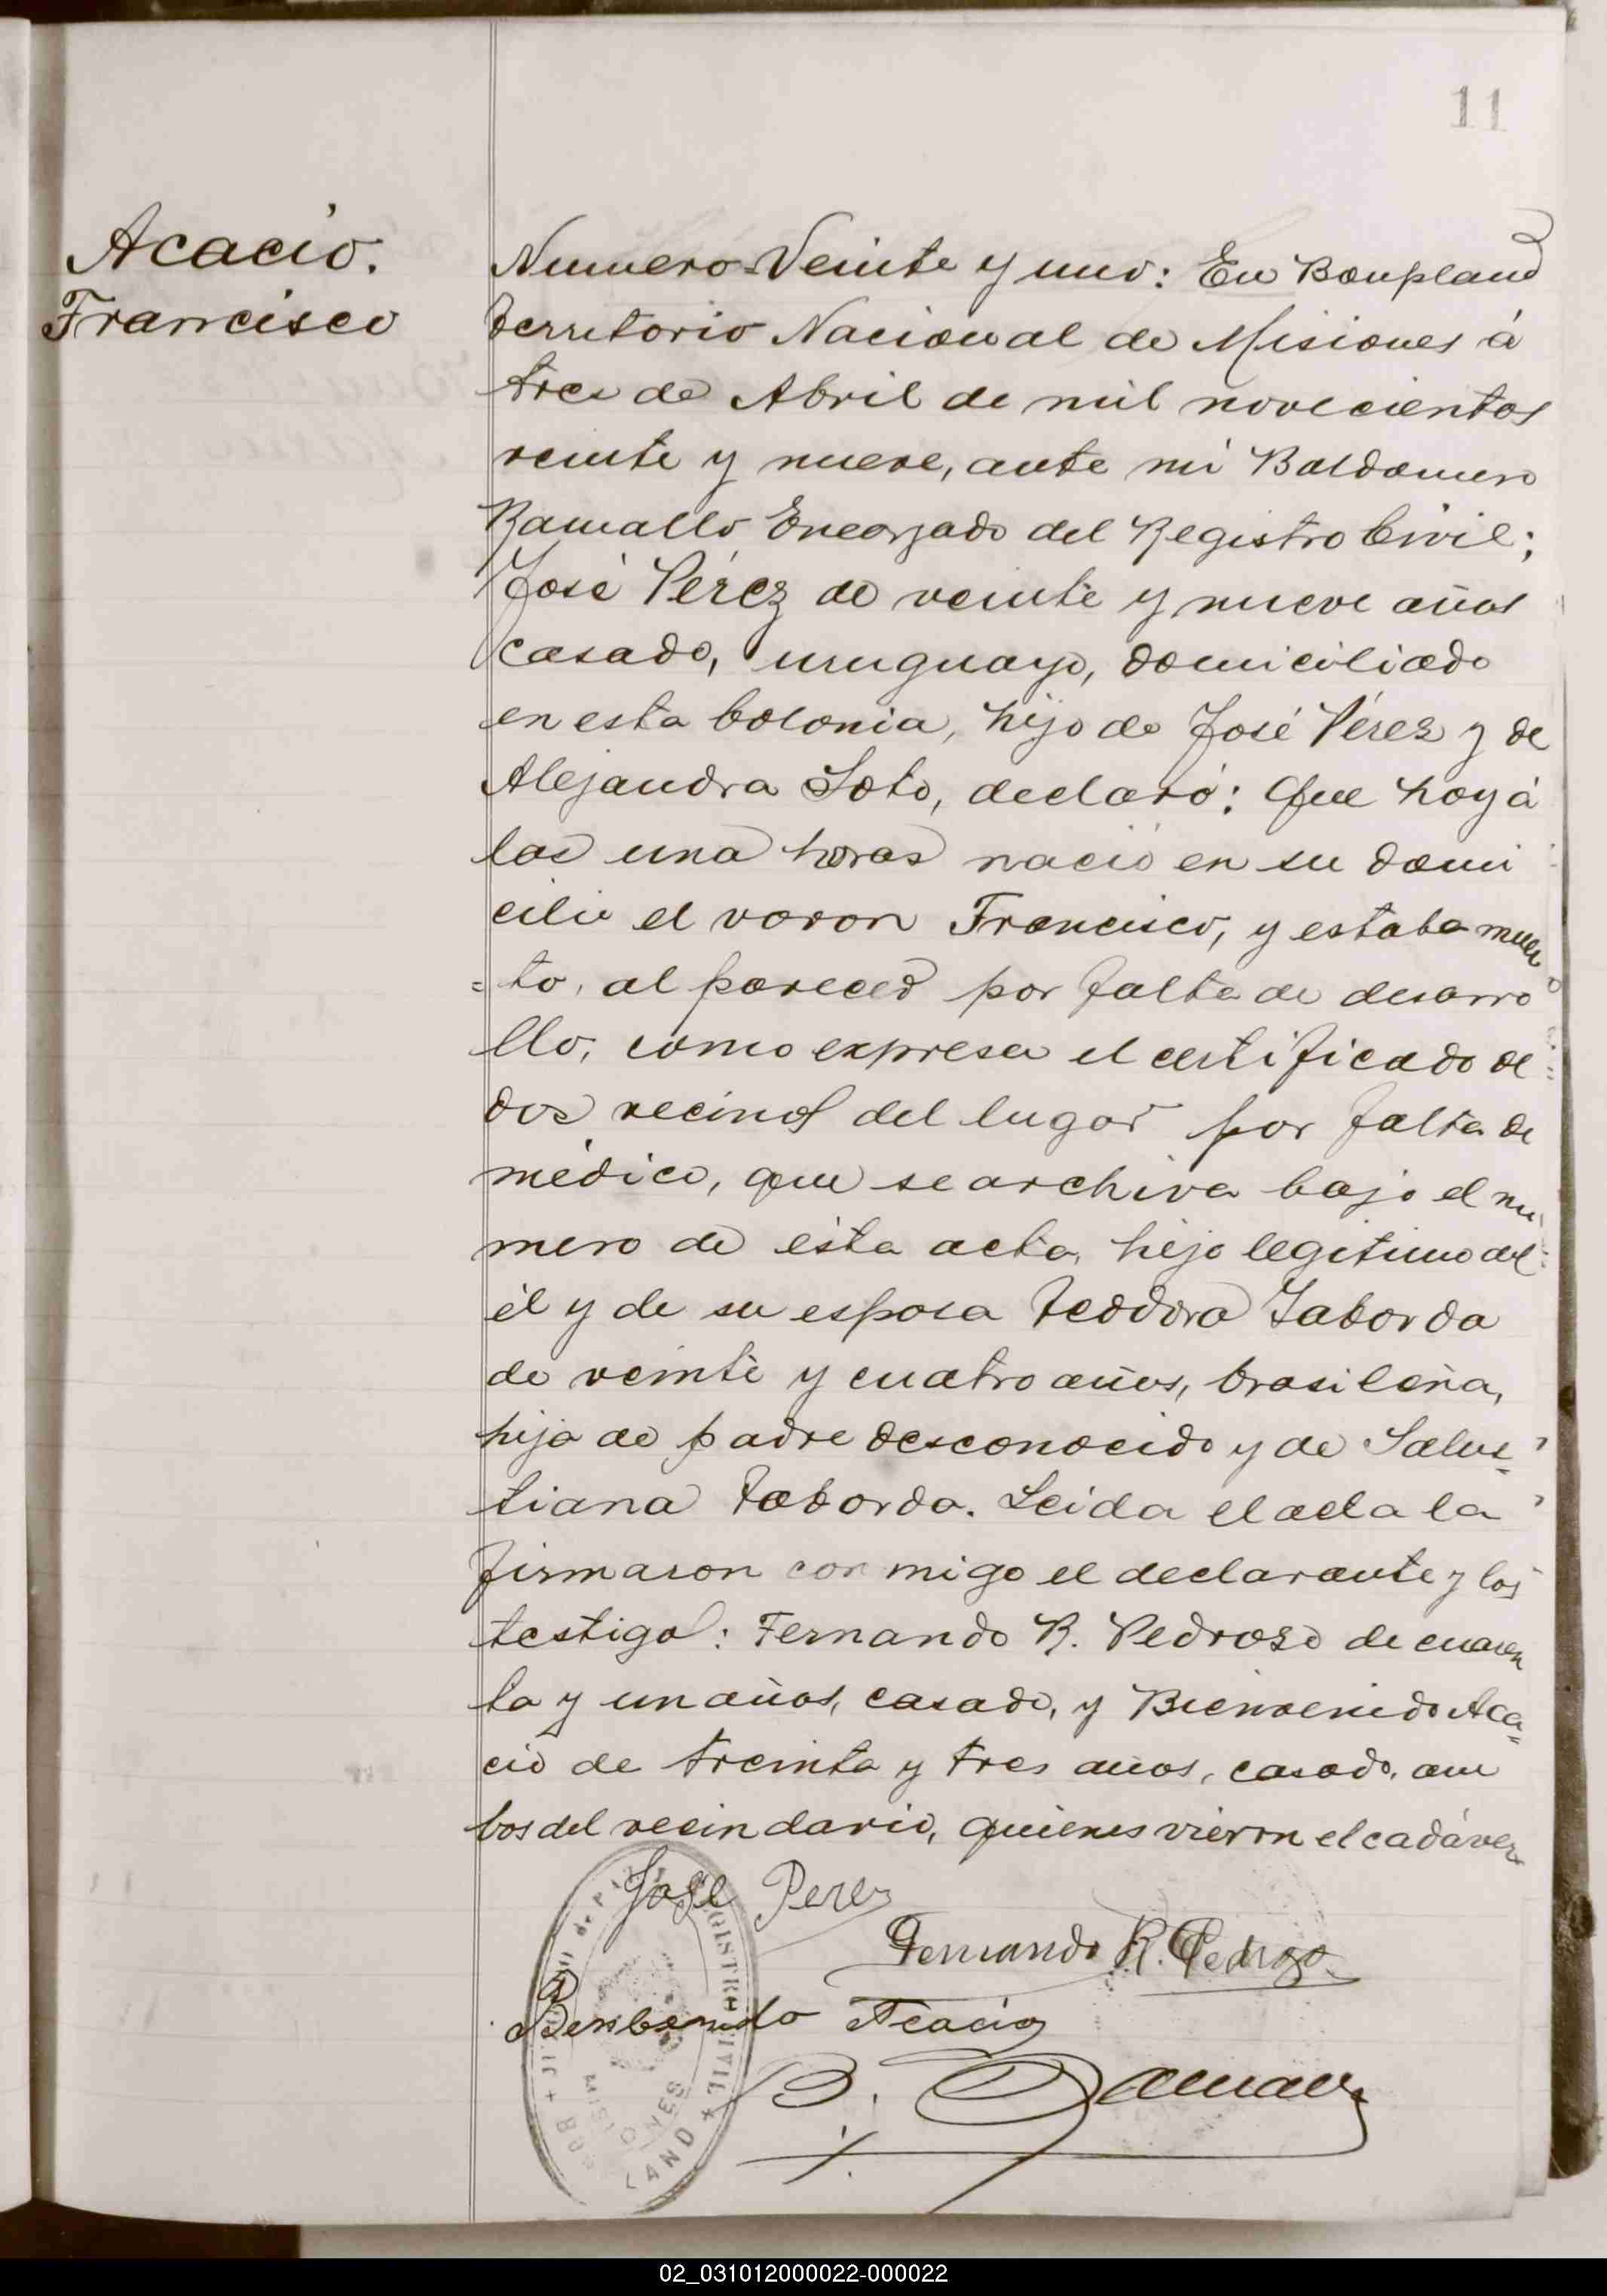 11
Acacio.
Francisco
Numero Veinte y uno: En Bonpland
Territorio Nacional de Misiones á
tres de Abril de mil novecientos
veinte y nueve, ante mí Baldomero
Ramallo Encargado del Registro Civil;
José Pérez de veinte y nueve años
casado, uruguayo, domiciliado
en esta Colonia, hijo de José Pérez y de
Alejandra Soto, declaró: Que hoy á
las una horas nació en su domi
cilio el varon Francisco, y estaba muer
=to, al parecer por falta de desarro
llo, como expresa el certificado de
dos vecinos del lugar por falta de
médico, que se archiva bajo el nu
mero de ésta acta, hijo legitimo del
él y de su esposa Teodora Taborda
de veinte y cuatro años, brasileña,
hija de padre desconocido y de Salus=
tiana Taborda. Leida el acta la
firmaron conmigo el declarante y los
testigos: Fernando R. Pedrozo de cuaren
ta y un años, casado, y Bienvenido Aca=
cio de treinta y tres años, casado, am
bos del vecindario, quienes vieron el cadáver
José Perez
Fernando R. Pedrozo
Benbenido Acacio
B. Ramallo
MISIONES
02_031012000022-000022